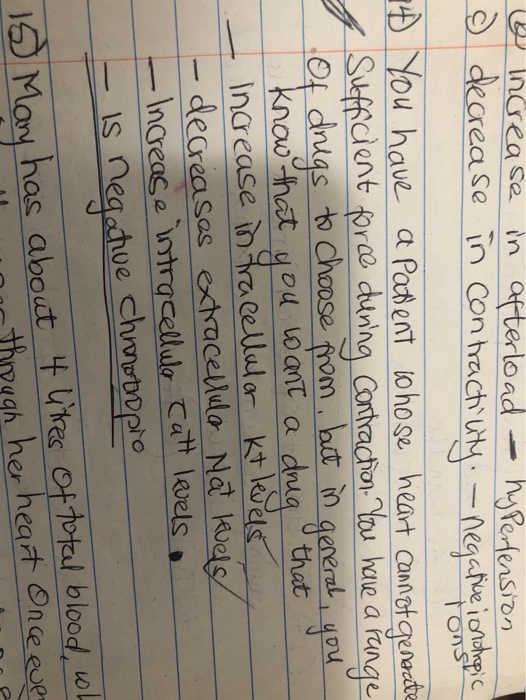 b) increase in afterload – hypertension
c) decrease in contractility. – negative ionotropic
ions
14) You have a Patient whose heart cannot generate
Sufficient force during contraction. You have a range
Of drugs to choose from, but in general, you
know that you want a drug that
– Increase intracellular K+ levels
– decreases extracellular Na+ levels
– Increase intracellular Ca++ levels.
– is negative chronotropic
15) Mary has about 4 litres of total blood,
through her heart Once